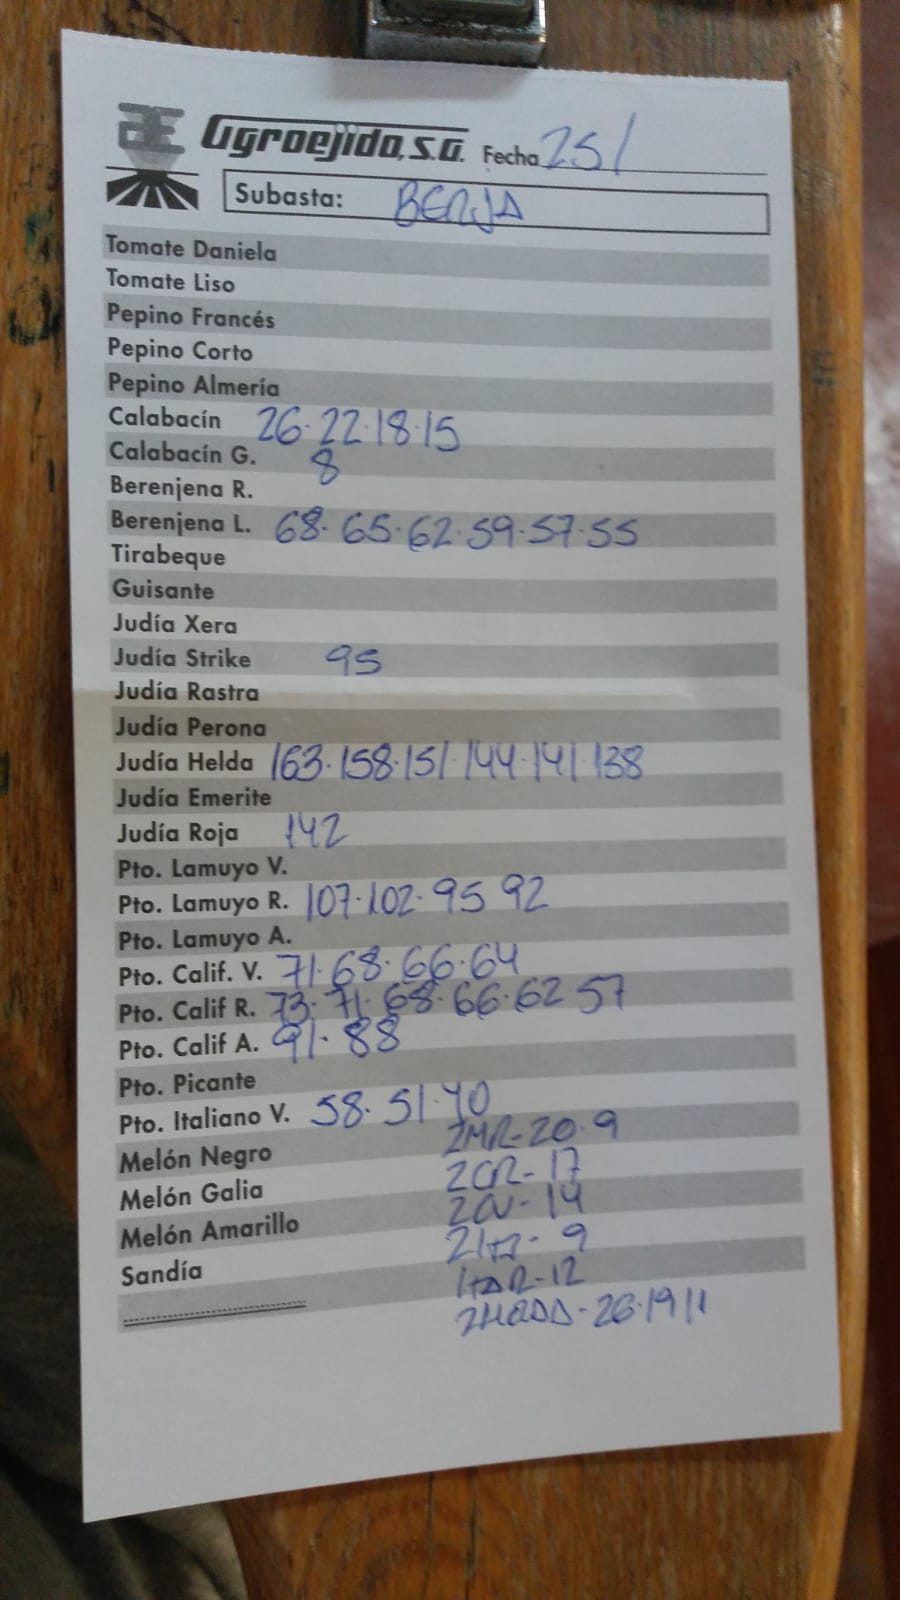 Agroejido, S.A. Fecha 25/
Subasta: BERJA
Tomate Daniela
Tomate Liso
Pepino Francés
Pepino Corto
Pepino Almería
Calabacín 26.22.18.15
Calabacín G. 8
Berenjena R.
Berenjena L. 68.65.62.59.57.55
Tirabeque
Guisante
Judía Xera
Judía Strike 95
Judía Rastra
Judía Perona
Judía Helda 163.158.151.144.141.138
Judía Emerite
Judía Roja 142
Pto. Lamuyo V.
Pto. Lamuyo R. 107.102.95 92
Pto. Lamuyo A.
Pto. Calif. V. 71.68.66.64
Pto. Calif R. 73.71.68.66.62 57
Pto. Calif A. 91.88
Pto. Picante
Pto. Italiano V. 58.51.40
Melón Negro 2MR-20.9
Melón Galia 2CR-17
2CV-14
Melón Amarillo - 9
Sandía -12
- 26.19 11